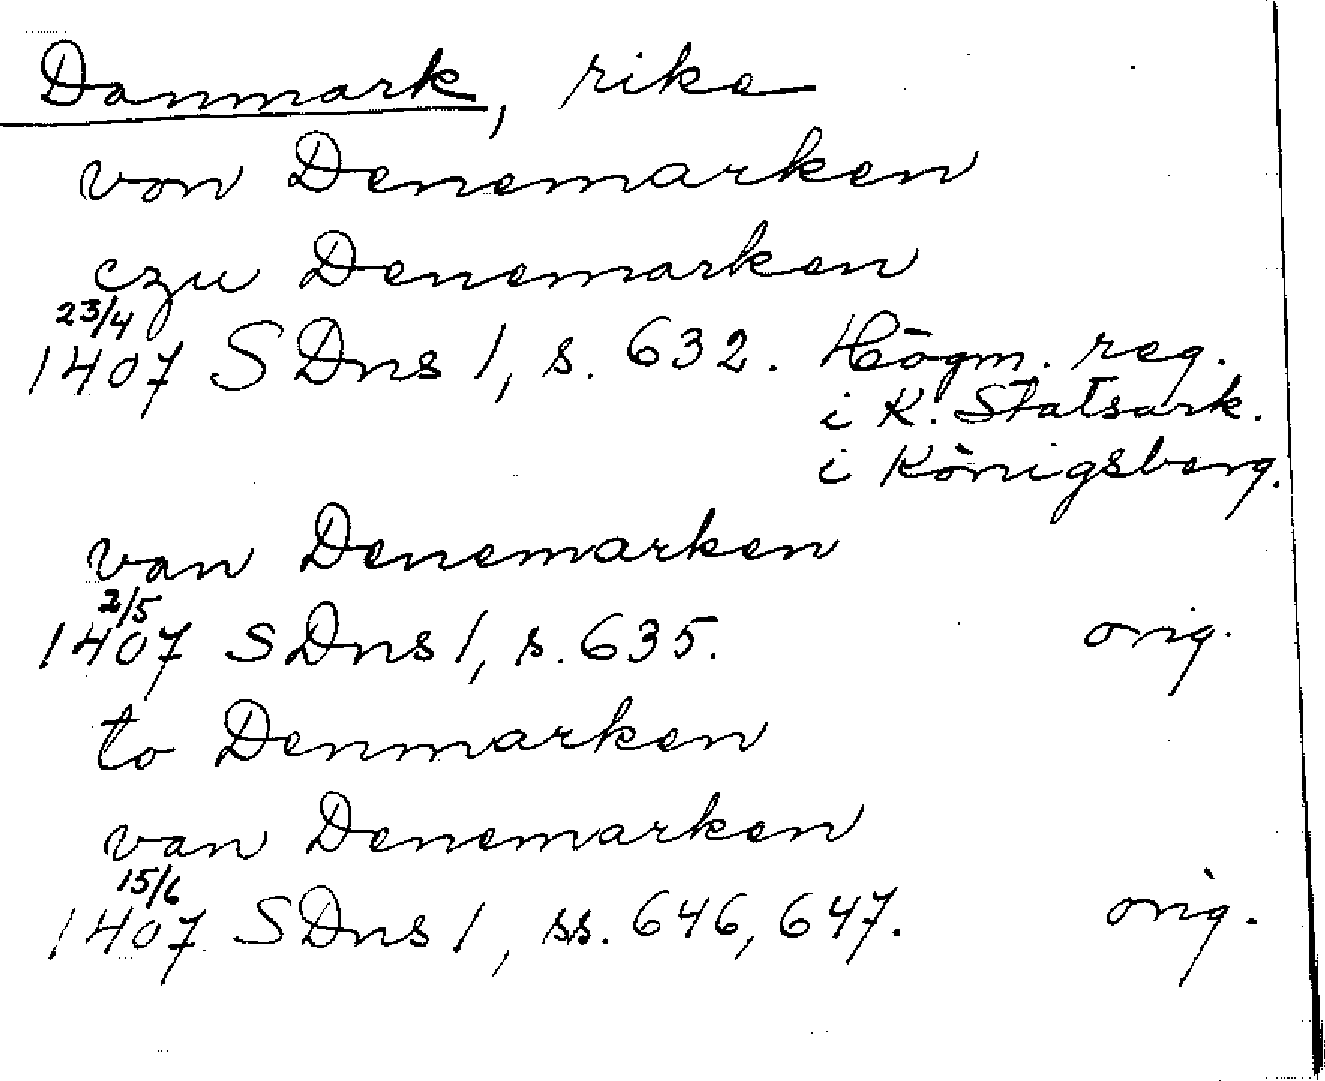 Danmark, rike
von Denemarken
czu Denemarken
23/4
1407 SDns 1, s. 632. Högm. reg.
i K. Statsark.
i Königsberg.
van Denemarken
2/5
1407 SDns 1, s. 635. orig.
to Denmarken
van Denemarken
15/6
1407 SDns 1, ss. 646, 647. orig.